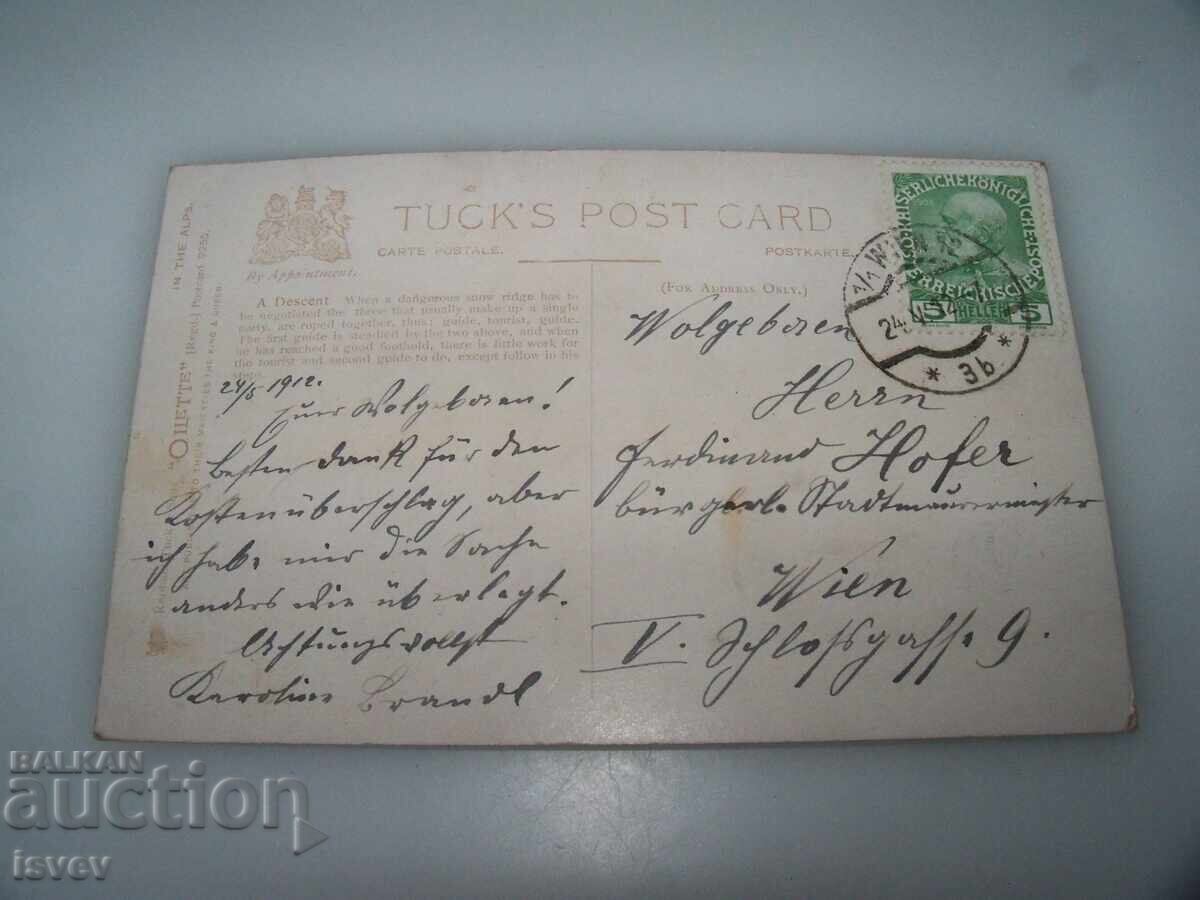 TUCK'S POST CARD
CARTE POSTALE.
POSTKARTE.
By Appointment.
(FOR ADDRESS ONLY.)
A DESCENT When a dangerous snow ridge has to
be negotiated the three that usually make up a single
party, are roped together, thus: guide, tourist, guide.
The first guide is steadied by the two above, and when
he has reached a good foothold, there is little work for
the tourist and second guide to do, except follow in his
steps.
24/5 1912.
Euer Wolgeboren!
Besten Dank für den
Kostenüberschlag, aber
ich habe mir die Sache
anders überlegt.
Achtungsvollst
Karoline Brandl
Wolgeboren
Herrn
Ferdinand Hofer
bürgerl. Stadtmaurermeister
Wien
V. Schlossgasse 9.
IN THE ALPS.
"OILETTE" [Regd.] Postcard 9250.
TO THEIR MAJESTIES THE KING & QUEEN.
KAISERLICHE KÖNIGLICHE ÖSTERREICHISCHE
5 HELLER 5
1/1 WIEN
24. V
* 3b *
BALKAN
auction
isvev